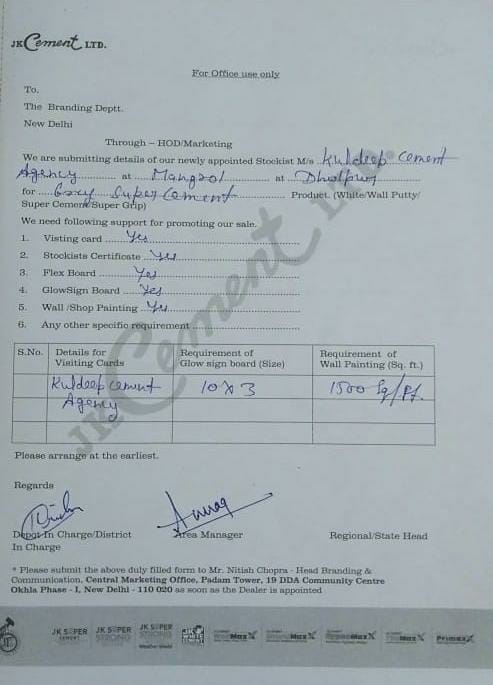 JK Cement LTD.
For Office use only
To.
The Branding Deptt.
New Delhi
Through – HOD/Marketing
We are submitting details of our newly appointed Stockist M/s Kuldeep Cement
Agency at Mangrol at Dholpur
for Grey Super Cement Product. (White/Wall Putty/
Super Cement/Super Grip)
We need following support for promoting our sale.
1. Visting card Yes
2. Stockists Certificate Yes
3. Flex Board Yes
4. GlowSign Board Yes
5. Wall /Shop Painting Yes
6. Any other specific requirement
S.No. Details for Visiting Cards Requirement of Glow sign board (Size) Requirement of Wall Painting (Sq. ft.)
Kuldeep cement 10 x 3 1500 Sq/Ft.
Agency
Please arrange at the earliest.
Regards
Anurag
Depot In Charge/District Area Manager Regional/State Head
In Charge
* Please submit the above duly filled form to Mr. Nitish Chopra - Head Branding &
Communication, Central Marketing Office, Padam Tower, 19 DDA Community Centre
Okhla Phase - I, New Delhi - 110 020 as soon as the Dealer is appointed
JK SUPER CEMENT JK SUPER STRONG JK SUPER STRONG Weather Shield JK WHITE PrimaxX
JK Cement LTD.